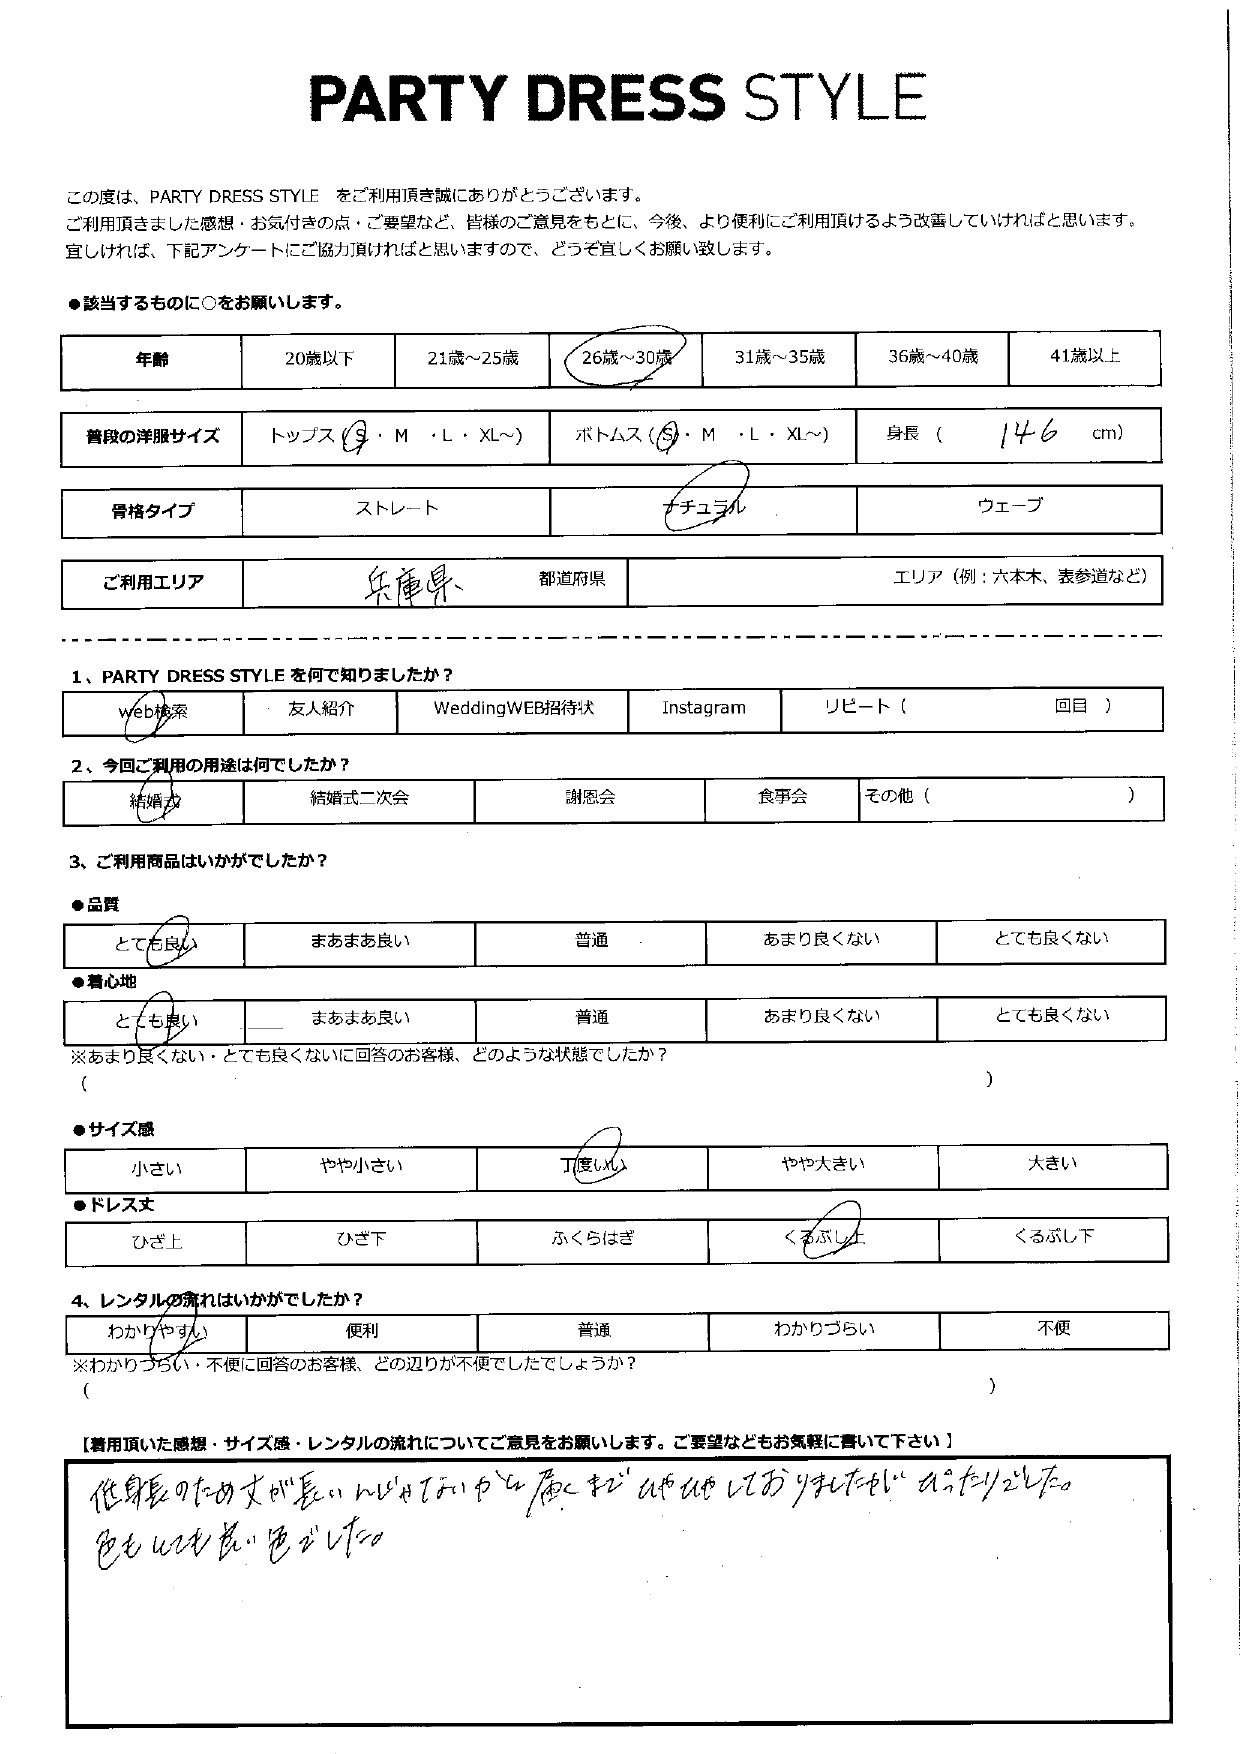 PARTY DRESS STYLE
この度は、PARTY DRESS STYLE をご利用頂き誠にありがとうございます。
ご利用頂きました感想・お気付きの点・ご要望など、皆様のご意見をもとに、今後、より便利にご利用頂けるよう改善していければと思います。
宜しければ、下記アンケートにご協力頂ければと思いますので、どうぞ宜しくお願い致します。
●該当するものに○をお願いします。
年齢 20歳以下 21歳～25歳 26歳～30歳 31歳～35歳 36歳～40歳 41歳以上
普段の洋服サイズ トップス (S・ M ・L ・ XL～) ボトムス (S・ M ・L ・ XL～) 身長 ( 146 cm)
骨格タイプ ストレート ナチュラル ウェーブ
ご利用エリア 兵庫県 都道府県 エリア（例：六本木、表参道など）
1、PARTY DRESS STYLE を何で知りましたか？
web検索 友人紹介 WeddingWEB招待状 Instagram リピート（ 回目 ）
2、今回ご利用の用途は何でしたか？
結婚式 結婚式二次会 謝恩会 食事会 その他（ ）
3、ご利用商品はいかがでしたか？
●品質
とても良い まあまあ良い 普通 あまり良くない とても良くない
●着心地
とても良い まあまあ良い 普通 あまり良くない とても良くない
※あまり良くない・とても良くないに回答のお客様、どのような状態でしたか？
( )
●サイズ感
小さい やや小さい 丁度いい やや大きい 大きい
●ドレス丈
ひざ上 ひざ下 ふくらはぎ くるぶし上 くるぶし下
4、レンタルの流れはいかがでしたか？
わかりやすい 便利 普通 わかりづらい 不便
※わかりづらい・不便に回答のお客様、どの辺りが不便でしたでしょうか？
( )
【着用頂いた感想・サイズ感・レンタルの流れについてご意見をお願いします。ご要望などもお気軽に書いて下さい 】
低身長のため丈が長いんじゃないかと届くまでひやひやしておりましたがぴったりでした。
色もとても良い色でした。